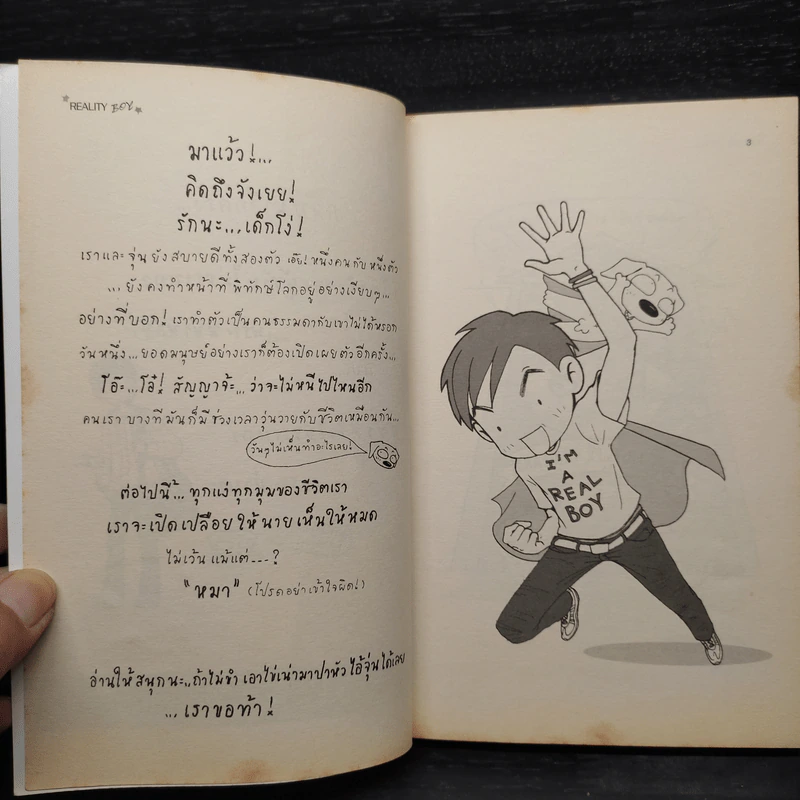 REALITY BOY
มาแว้ว!...
คิดถึงจังเยย!
รักนะ...เด็กโง่!
เราและจุ่นยังสบายดีทั้งสองตัว เอ๊ย! หนึ่งคนกับหนึ่งตัว
...ยังคงทำหน้าที่ พิทักษ์โลกอยู่อย่างเงียบๆ...
อย่างที่บอก! เราทำตัวเป็นคนธรรมดากับเขาไม่ได้หรอก
วันหนึ่ง...ยอดมนุษย์อย่างเราก็ต้องเปิดเผยตัวอีกครั้ง...
โอ๊ะ...โอ๋! สัญญาจ้ะ... ว่าจะไม่หนีไปไหนอีก
คนเรา บางทีมันก็มีช่วงเวลาวุ่นวายกับชีวิตเหมือนกัน...
วันๆไม่เห็นทำอะไรเลย!
ต่อไปนี้...ทุกแง่ทุกมุมของชีวิตเรา
เราจะเปิดเปลือยให้นายเห็นให้หมด
ไม่เว้นแม้แต่...?
"หมา" (โปรดอย่าเข้าใจผิด!)
อ่านให้สนุกนะ..ถ้าไม่ขำ เอาไข่เน่ามาปาหัวไอ้จุ่นได้เลย
...เราขอท้า!
3
I'M
A
REAL
BOY